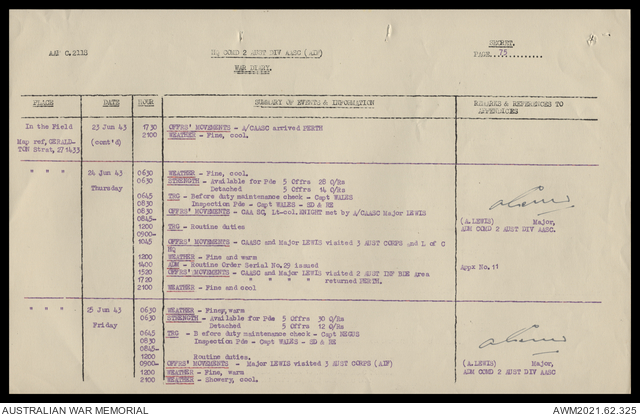 AAF C.2118
HQ COMD 2 AUST DIV AASC (AIF)
SECRET.
PAGE...75..........
WAR DIARY.
PLACE DATE HOUR SUMMARY OF EVENTS & INFORMATION REMARKS & REFERENCES TO
APPENDICES
In the Field 23 Jun 43 1730 OFFRS' MOVEMENTS - A/CAASC arrived PERTH
(cont'd) 2100 WEATHER - Fine, cool.
Map ref, GERALD-
TON Strat, 271433.
" " " 24 Jun 43 0630 WEATHER - Fine, cool.
Thursday 0630 STRENGTH - Available for Pde 5 Offrs 28 O/Rs
Detached 5 Offrs 14 O/Rs
0645 TRG - Before duty maintenance check - Capt WALES
0830 Inspection Pde - Capt WALES - SD & RE
0830 OFFRS' MOVEMENTS - CAA SC, Lt-col. KNIGHT met by A/CAASC Major LEWIS
0845-
1200 TRG - Routine duties
0900-
1045 OFFRS' MOVEMENTS - CAASC and Major LEWIS visited 3 AUST CORPS and L of C
HQ
1200 WEATHER - Fine and warm
1400 ADM - Routine Order Serial No.29 issued
1520 OFFRS' MOVEMENTS - CAASC and Major LEWIS visited 2 AUST INF BDE Area
1720 " " " " returned PERTH.
2100 WEATHER - Fine and cool
(A.LEWIS) Major,
ADM COMD 2 AUST DIV AASC.
Appx No.11
" " " 25 Jun 43 0630 WEATHER - Fine, warm
Friday 0630 STRENGTH - Available for Pde 5 Offrs 30 O/Rs
Detached 5 Offrs 12 O/Rs
0645 TRG - B efore duty maintenance check - Capt NEGUS
0830 Inspection Pde - Capt WALES - SD & RE
0845-
1200 Routine duties.
0900- OFFRS' MOVEMENTS - Major LEWIS visited 3 AUST CORPS (AIF)
1200 WEATHER - Fine, warm
2100 WEATHER - Showery, cool.
(A.LEWIS) Major
ADM COMD 2 AUST DIV AASC
AUSTRALIAN WAR MEMORIAL
AWM2021.62.325